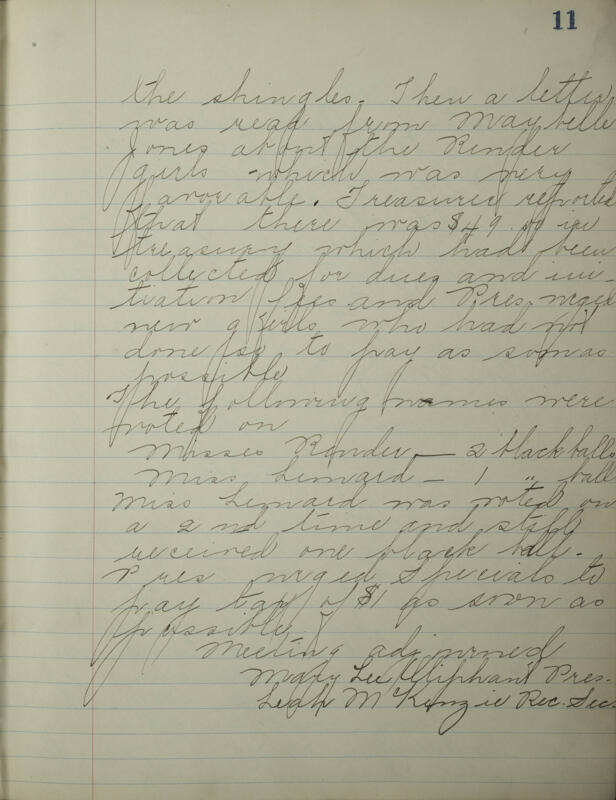 11
the shingles. Then a letter
was read from Maybelle
Jones about the Render
girls which was very
favorable. Treasurer reported
that there was $49.50 in
treasury which had been
collected for dues and ini-
tiation fees and Pres. urged
new girls who had not
done so to pay as soon as
possible
The following names were
voted on
Misses Render — 2 black balls
Miss Lennard — 1 " ball
Miss Lennard was voted on
a 2nd time and still
received one black ball.
Pres urged Specials to
pay tax of $1 as soon as
possible.
Meeting adjourned
Mary Lee Oliphant Pres.
Leah McKenzie Rec. Sec.